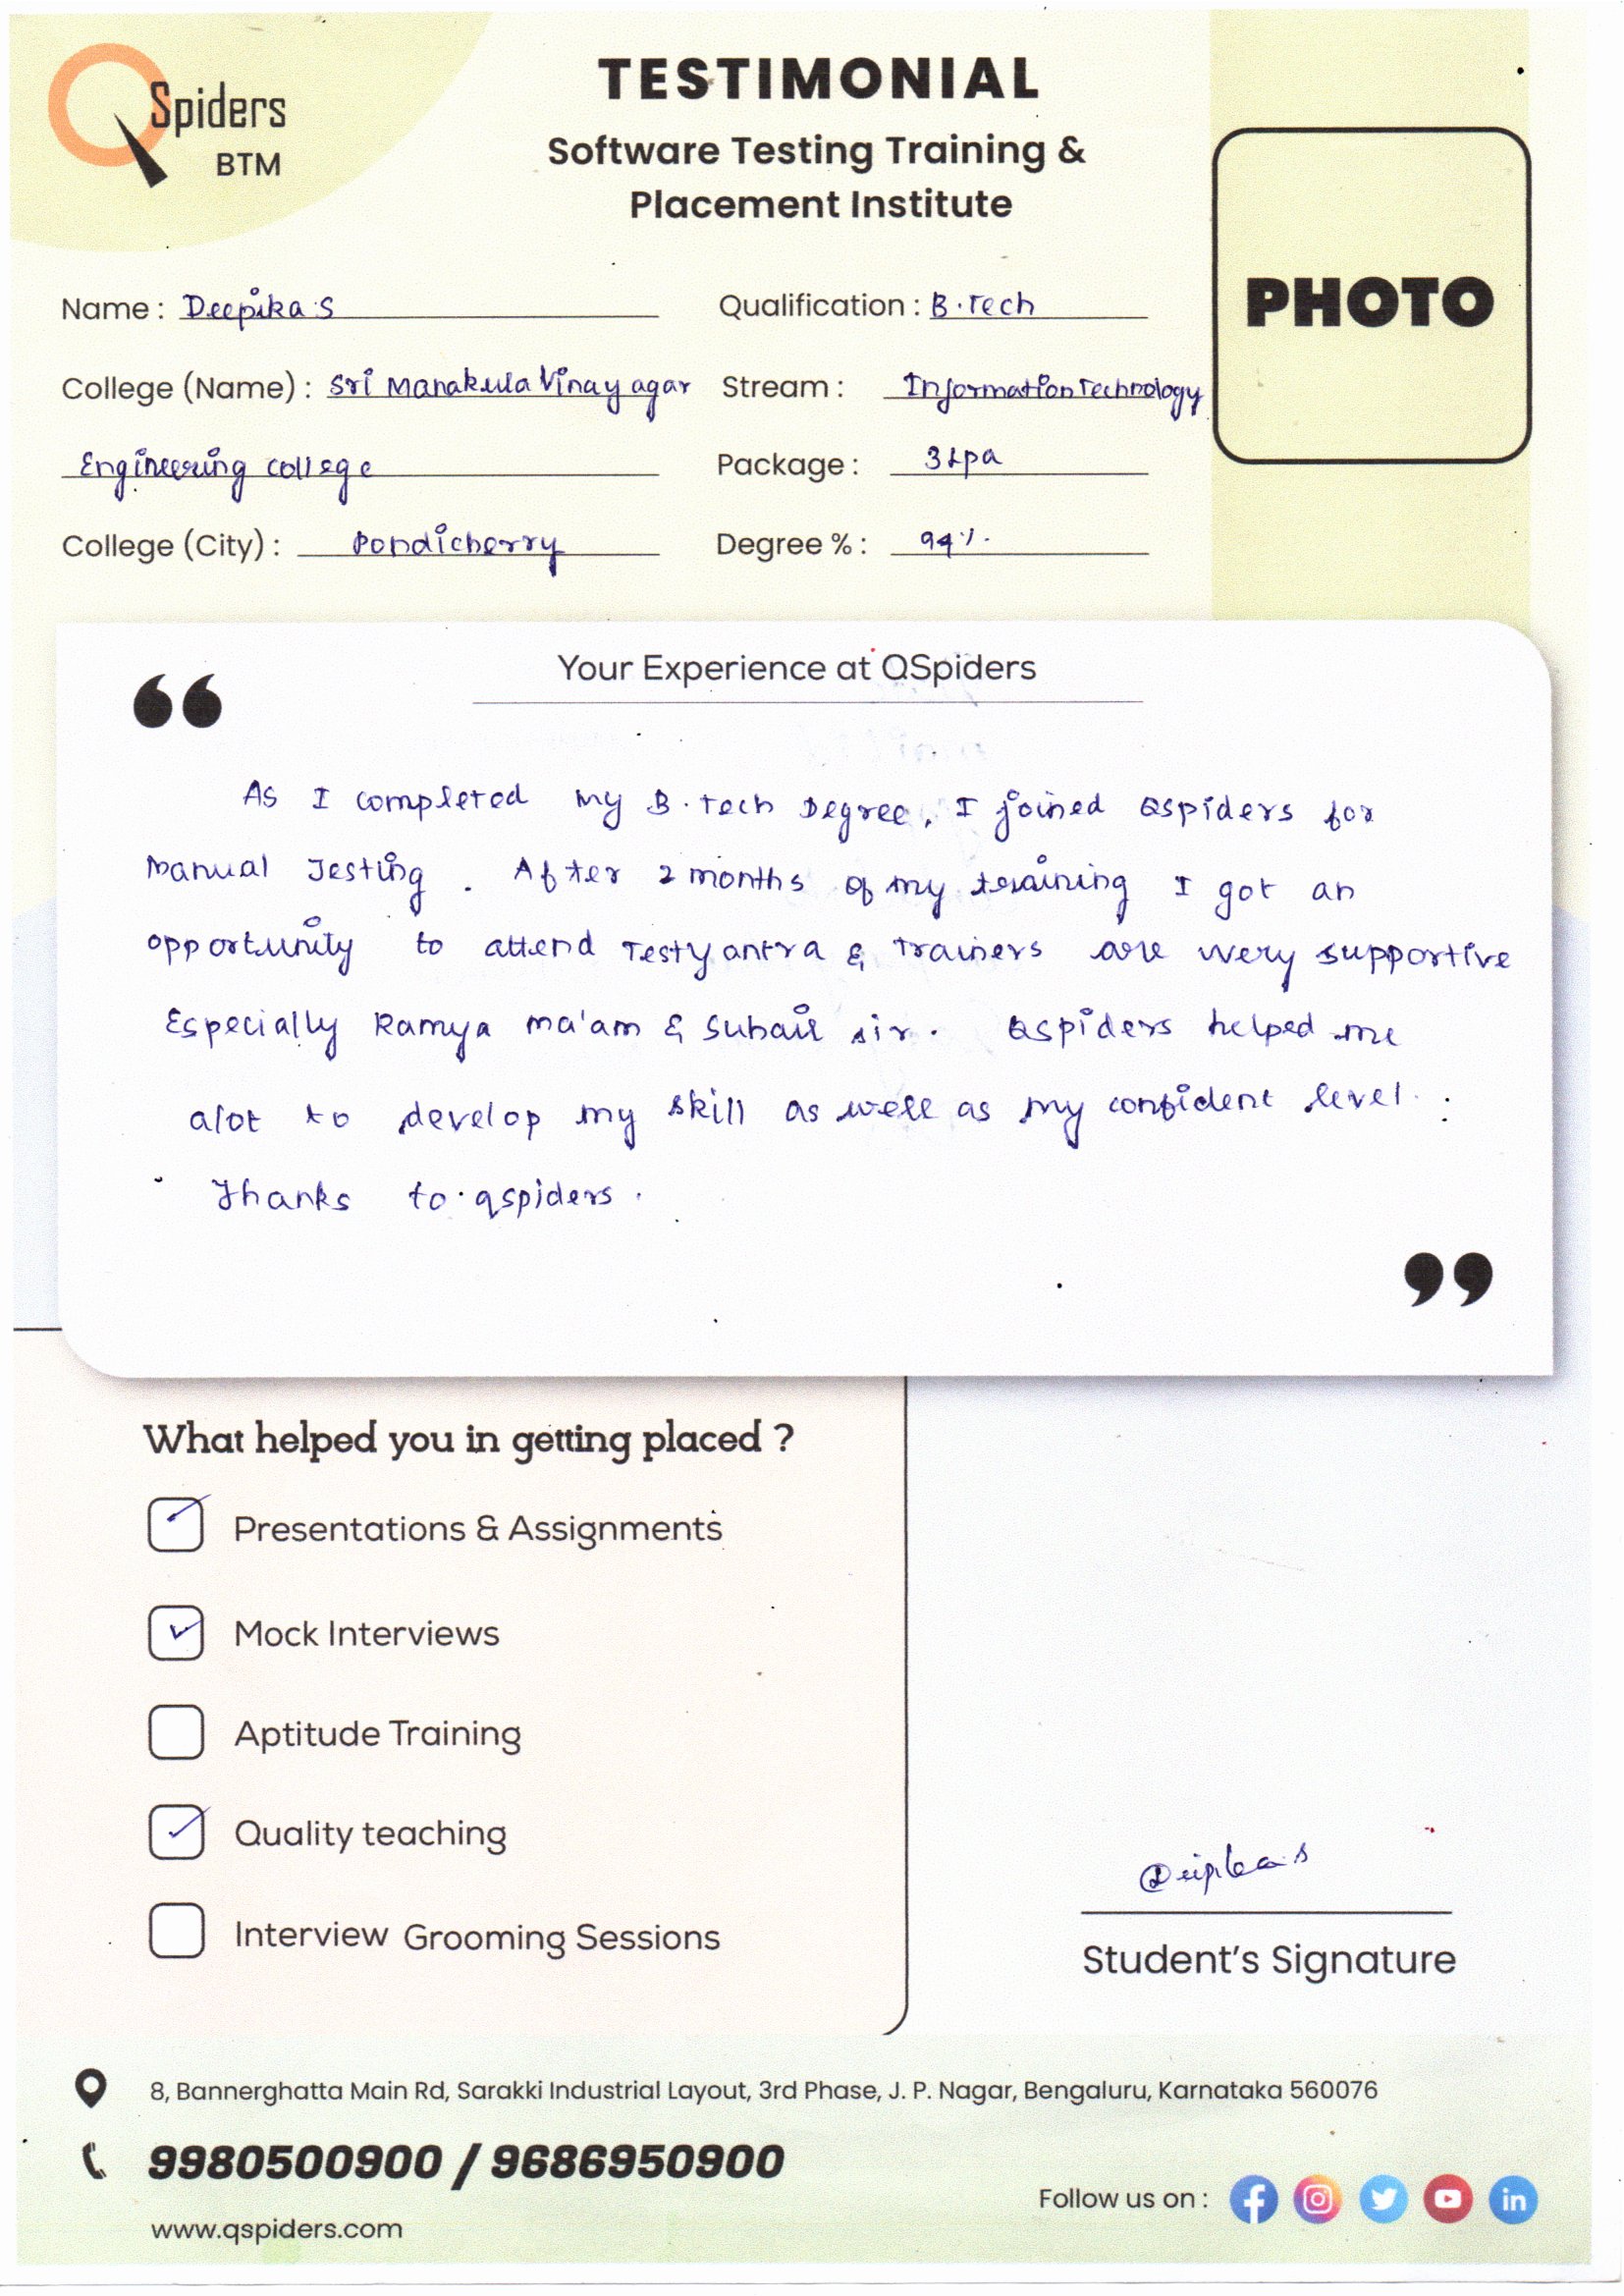 QSpiders
BTM
TESTIMONIAL
Software Testing Training &
Placement Institute
PHOTO
Name : Deepika.S
Qualification : B.Tech
College (Name) : Sri Manakula Vinayagar
Stream : Information Technology
Engineering college
Package : 3Lpa
College (City) : Pondicherry
Degree % : 94%
Your Experience at QSpiders
As I completed my B.tech Degree, I joined Qspiders for
Manual Testing. After 2 months of my training I got an
opportunity to attend Testyantra & Trainers are very supportive
Especially Ramya ma'am & Subair sir. Qspiders helped me
alot to develop my skill as well as my confident level.
Thanks to qspiders.
What helped you in getting placed ?
Presentations & Assignments
Mock Interviews
Aptitude Training
Quality teaching
Interview Grooming Sessions
Deepika.S
Student's Signature
8, Bannerghatta Main Rd, Sarakki Industrial Layout, 3rd Phase, J. P. Nagar, Bengaluru, Karnataka 560076
9980500900 / 9686950900
www.qspiders.com
Follow us on :